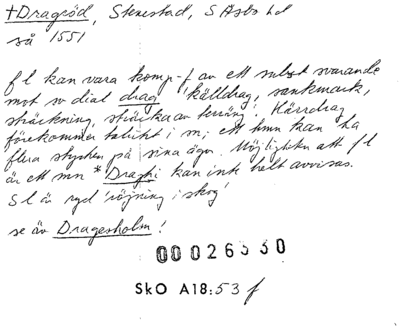 †Dragröd, Stenestad, S Åsbo hd
så 1551
f l kan vara komp-f av ett subst svarande
mot sv dial drag 'källdrag, sankmark,
sträckning, sträcka av terräng'. Härrdrag
förekommer talrikt i sn; ett hmn kan ha
flera stycken på sina ägor. Möjligheten att f l
är ett mn *Draghi kan inte helt avvisas.
S l är ryd 'röjning i skog'
se äv Dragesholm!
00026530
SkO A18:53 f